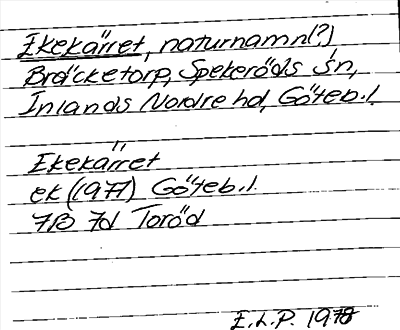 Ekekärret, naturnamn(?)
Bräcketorp, Spekeröds sn,
Inlands Nordre hd, Göteb.l.
Ekekärret
ek (1977) Göteb.l.
7B 7d Toröd
E.L.P. 1978